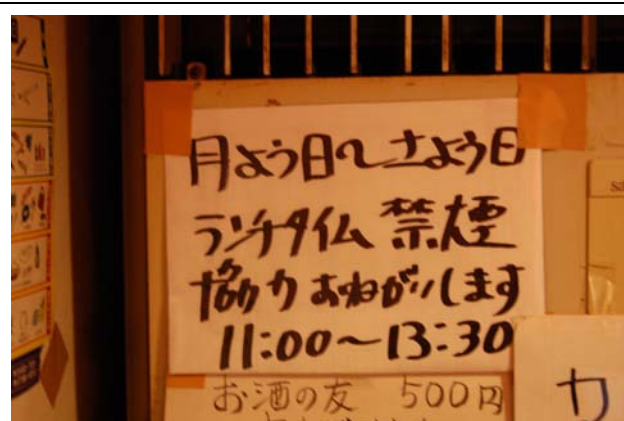 月よう日〜土よう日
ランチタイム 禁煙
協力おねがいします
11:00〜13:30
お酒の友 500円
カ